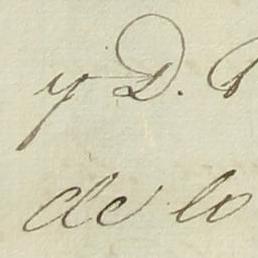 y D.
de lo